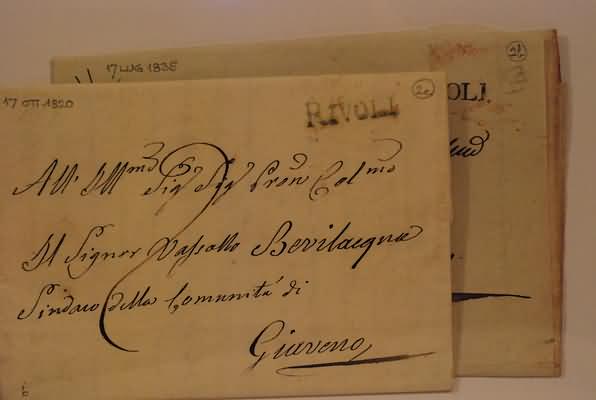 17 LUG 1835
2f
OLI
17 OTT 1820
2e
RIVOLI
All' Ill.mo Sig. Sig. Pron Col.mo
Il Signor Vassallo Bevilacqua
Sindaco della Comunità di
Giaveno